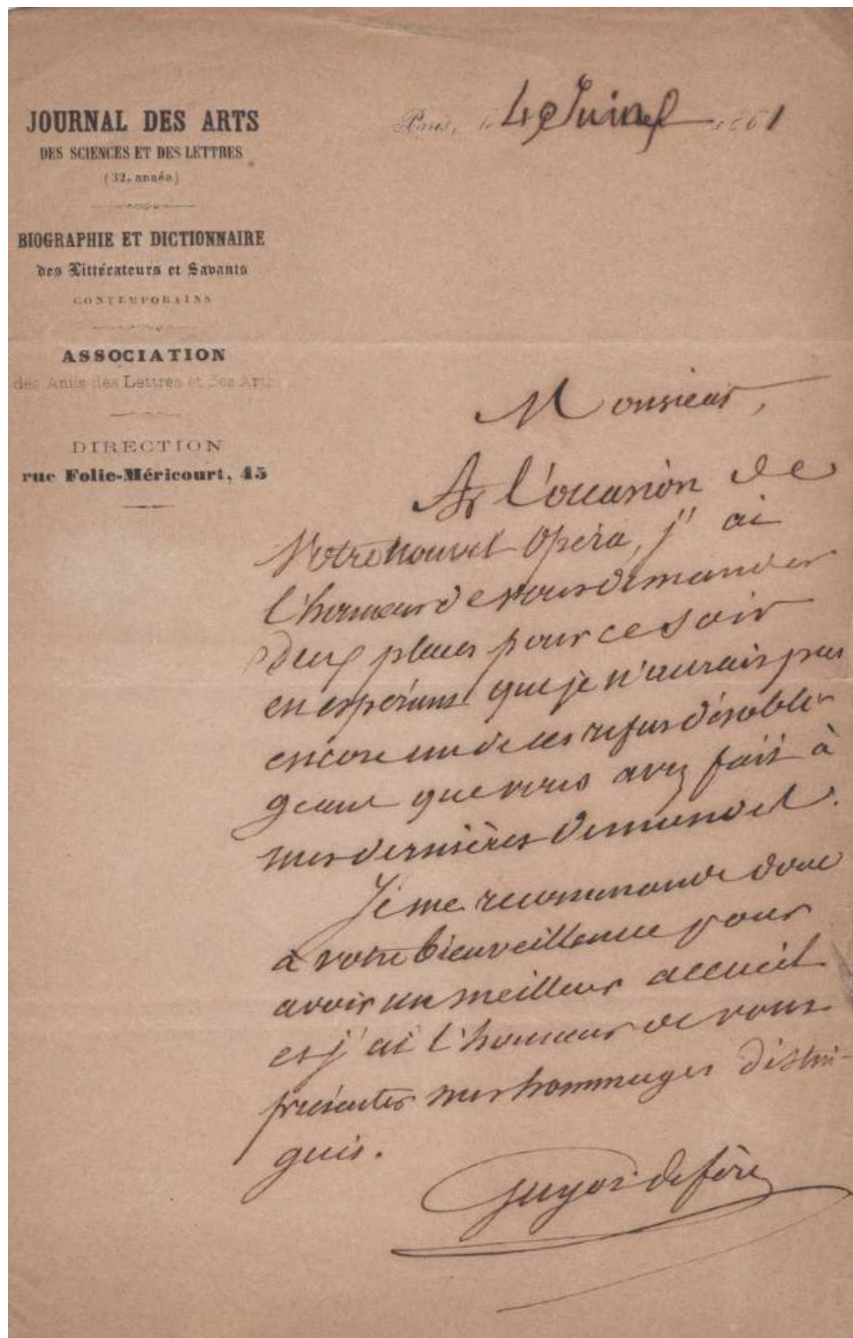 JOURNAL DES ARTS
DES SCIENCES ET DES LETTRES
(32e année)
BIOGRAPHIE ET DICTIONNAIRE
des Littérateurs et Savants
CONTEMPORAINS
ASSOCIATION
des Amis des Lettres et des Arts
DIRECTION
rue Folie-Méricourt, 45
Paris, le 4 Juin 1861
Monsieur,
A l'occasion de
Votre nouvel Opéra, j'ai
l'honneur de vous demander
Deux places pour ce soir
en espérant que je n'aurais pas
encore un de ces refus désobli-
geant que vous avez fait à
mes dernières demandes.
Je me recommande donc
à votre bienveillance pour
avoir un meilleur accueil
et j'ai l'honneur de vous
présenter mes hommages distin-
gués.
Guyot de fère